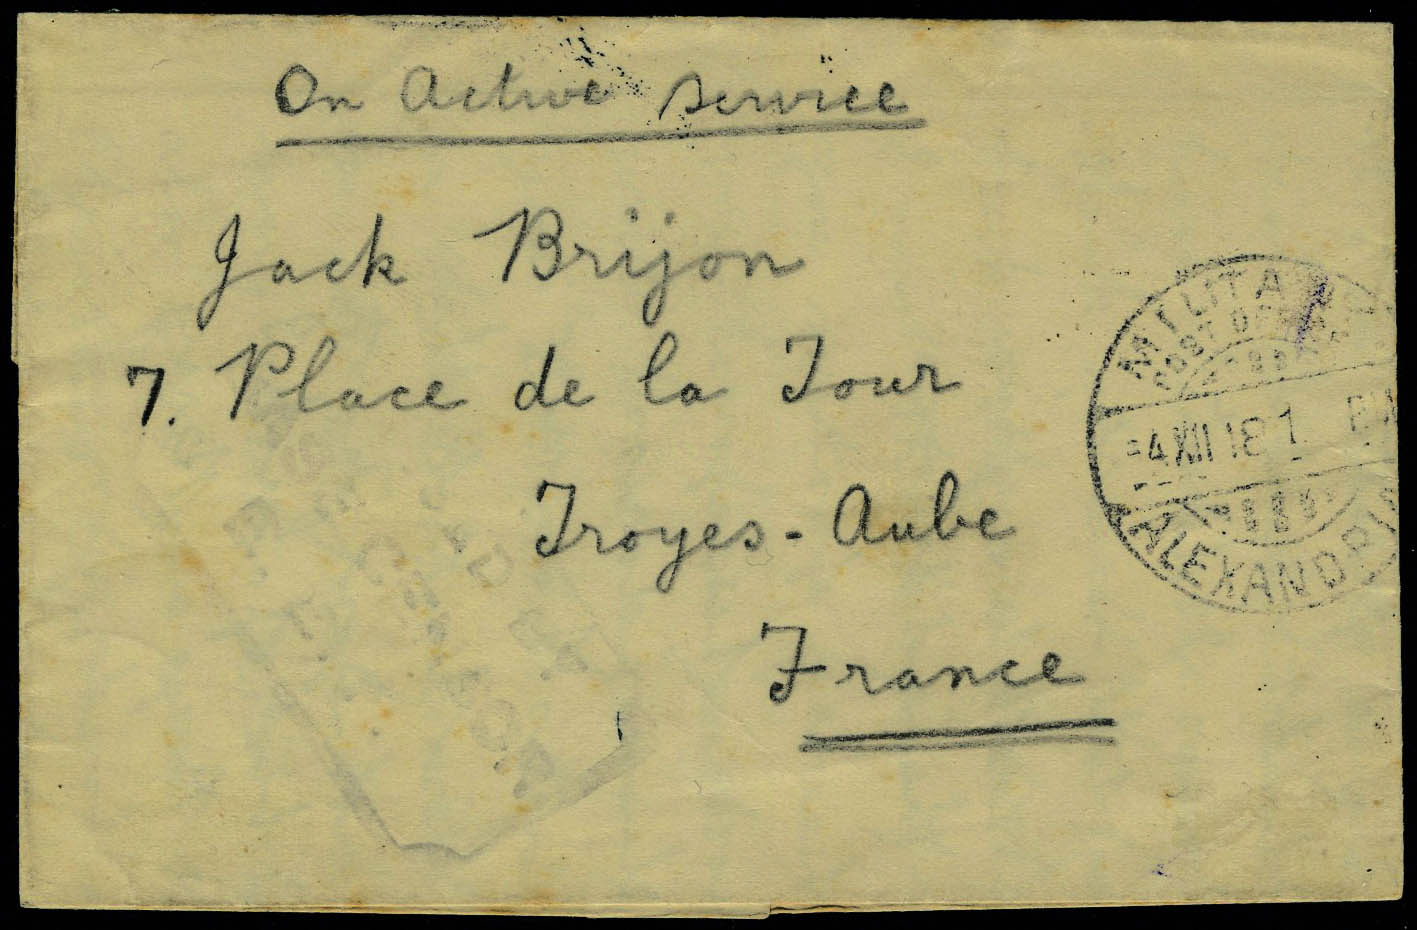 On Active Service
Jack Brijon
7. Place de la Tour
Troyes - Aube
France
MILITARY
POST OFFICE
-4 XII 18 1 PM
ALEXANDRIA